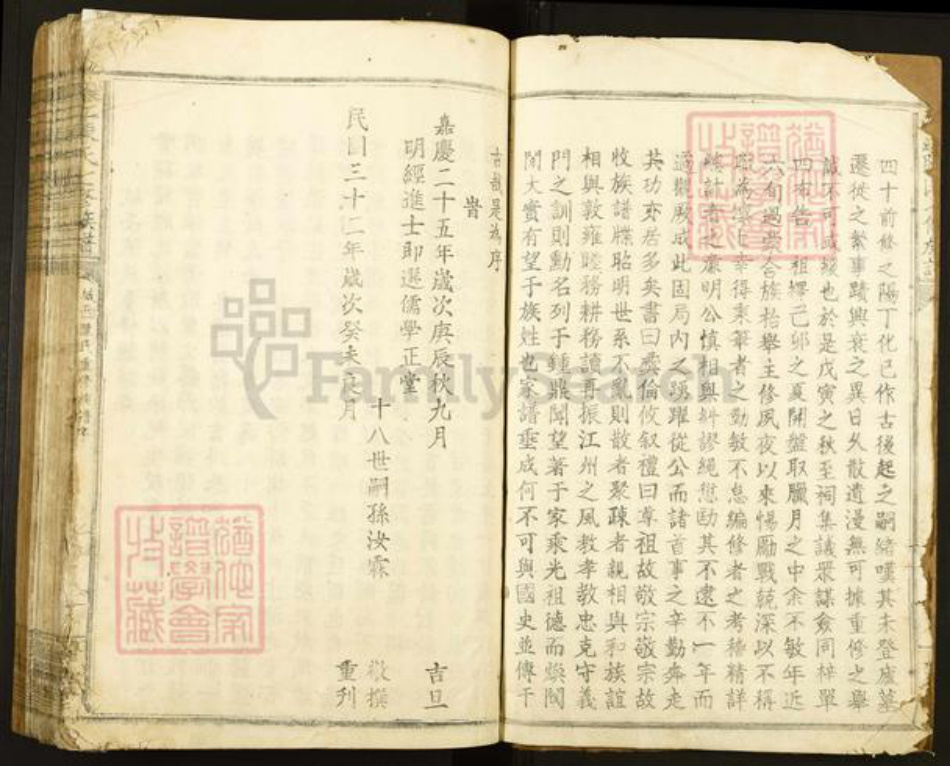 四十前修之陽丁化已作古後起之嗣緒嘆其未登廬墓
遷徙之繁事蹟興衰之異日久散遺漫無可據重修之舉
誠不可或緩也於是戊寅之秋至祠集議眾謀僉同梓單
四布告 祖擇己卯之夏開盤取臘月之中余不敏年近
六旬過蒙合族拾舉主修夙夜以來惕勵戰兢深以不稱
幸得秉筆者之勤敏不怠編修者之考稽精詳
總計者之廉明公慎相與糾謬繩愆勖其不逮不一年而
適觀厥成此固局內之踴躍從公而諸首事之辛勤奔走
其功亦居多矣書曰彝倫攸叙禮曰尊祖故敬宗敬宗故
收族譜牒昭明世系不亂則散者聚疎者親相與和族誼
相與敦雍睦務耕務讀再振江州之風教孝教忠克守義
門之訓則勳名列于鐘鼎聞望著于家乘光祖德而燦閥
閱大實有望于族姓也家譜垂成何不可與國史並傳千
古哉是為序
旹
嘉慶二十五年歲次庚辰秋九月 吉旦
明經進士即選儒學正堂
十八世嗣孫汝霖 敬撰
民國三十二年歲次癸未 月 重刊
譜學會
收藏
FamilySearch